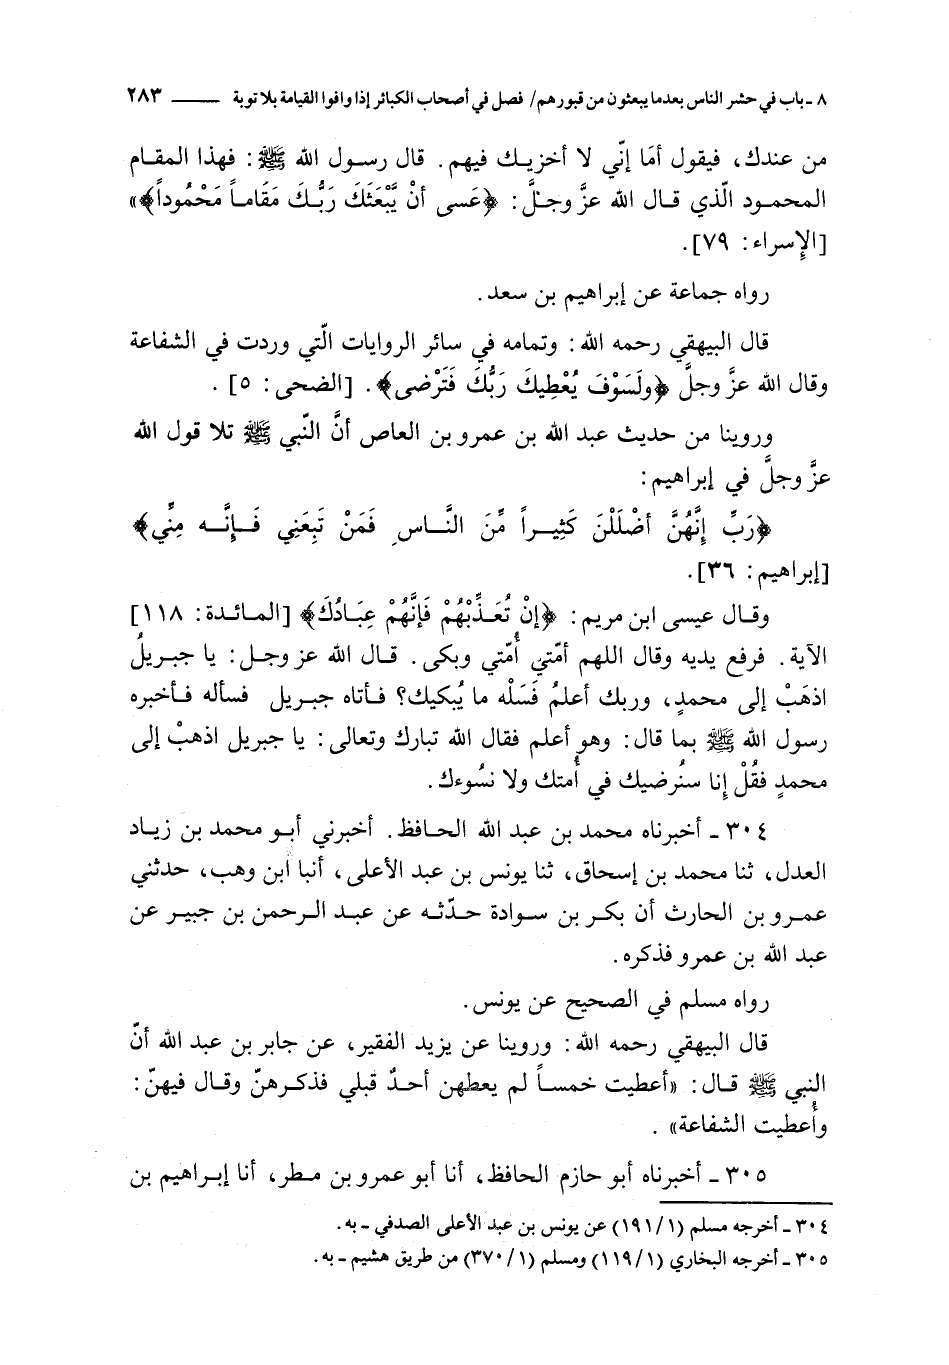 ٨ ـ باب في حشر الناس بعدما يبعثون من قبورهم/ فصل في أصحاب الكبائر إذا وافوا القيامة بلا توبة ــــــ ٢٨٣
من عندك، فيقول أمَا إنّي لا أخزيك فيهم. قال رسول الله ﷺ: فهذا المقام
المحمود الّذي قال الله عزَّ وجلَّ: ﴿عَسى أنْ يَّبْعَثَكَ رَبُّكَ مَقَاماً مَحْمُوداً﴾»
[الإسراء: ٧٩].
رواه جماعة عن إبراهيم بن سعد.
قال البيهقي رحمه الله: وتمامه في سائر الروايات الّتي وردت في الشفاعة
وقال الله عزَّ وجلَّ ﴿ولَسَوْفَ يُعْطِيكَ رَبُّكَ فَتَرْضى﴾. [الضحى: ٥] .
وروينا من حديث عبد الله بن عمرو بن العاص أنَّ النّبي ﷺ تلا قول الله
عزَّ وجلَّ في إبراهيم:
﴿رَبِّ إنَّهُنَّ أضْلَلْنَ كَثِيراً مِّنَ النَّاسِ فَمَنْ تَبِعَنِي فَإنَّه مِنِّي﴾
[إبراهيم: ٣٦].
وقال عيسى ابن مريم: ﴿إنْ تُعَذِّبْهُمْ فَإنَّهُمْ عِبَادُكَ﴾ [المائدة: ١١٨]
الآية. فرفع يديه وقال اللهم أمّتي أُمّتي وبكى. قال الله عز وجل: يا جبريلُ
اذهَبْ إلى محمدٍ، وربك أعلمُ فَسَلْه ما يُبكيك؟ فأتاه جبريل فسأله فأخبره
رسول الله ﷺ بما قال: وهو أعلم فقال الله تبارك وتعالى: يا جبريل اذهبْ إلى
محمدٍ فقُلْ إنا سنُرضيك في أُمتك ولا نسُوءك.
٣٠٤ ـ أخبرناه محمد بن عبد الله الحافظ. أخبرني أبو محمد بن زياد
العدل، ثنا محمد بن إسحاق، ثنا يونس بن عبد الأعلى، أنبا ابن وهب، حدثني
عمرو بن الحارث أن بكر بن سوادة حدّثه عن عبد الرحمن بن جبير عن
عبد الله بن عمرو فذكره.
رواه مسلم في الصحيح عن يونس.
قال البيهقي رحمه الله: وروينا عن يزيد الفقير، عن جابر بن عبد الله أنّ
النبي ﷺ قال: «أعطيت خمساً لم يعطهن أحدٌ قبلي فذكرهنّ وقال فيهنّ:
وأُعطيت الشفاعة» .
٣٠٥ ـ أخبرناه أبو حازم الحافظ، أنا أبو عمرو بن مطر، أنا إبراهيم بن
٣٠٤ ـ أخرجه مسلم (١/ ١٩١) عن يونس بن عبد الأعلى الصدفي ـ به.
٣٠٥ ـ أخرجه البخاري (١/ ١١٩) ومسلم (١/ ٣٧٠) من طريق هشيم ـ به.